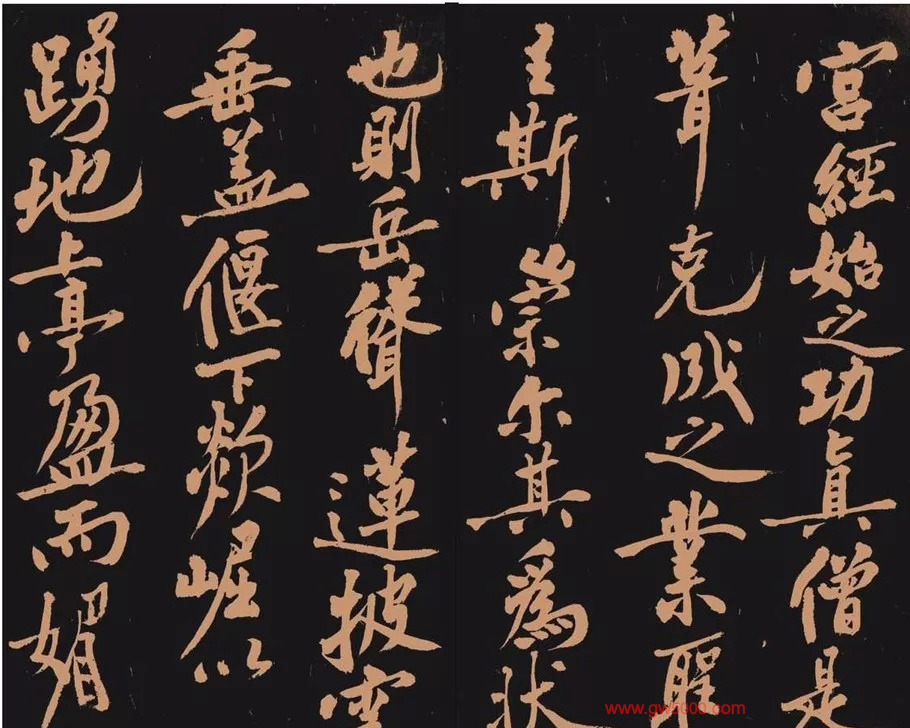 宮經始之功真僧是
葺克成之業聖
主斯崇尔其爲狀
也則岳聳蓮披雲
垂盖偃下欻崛以
踴地上亭盈而媚